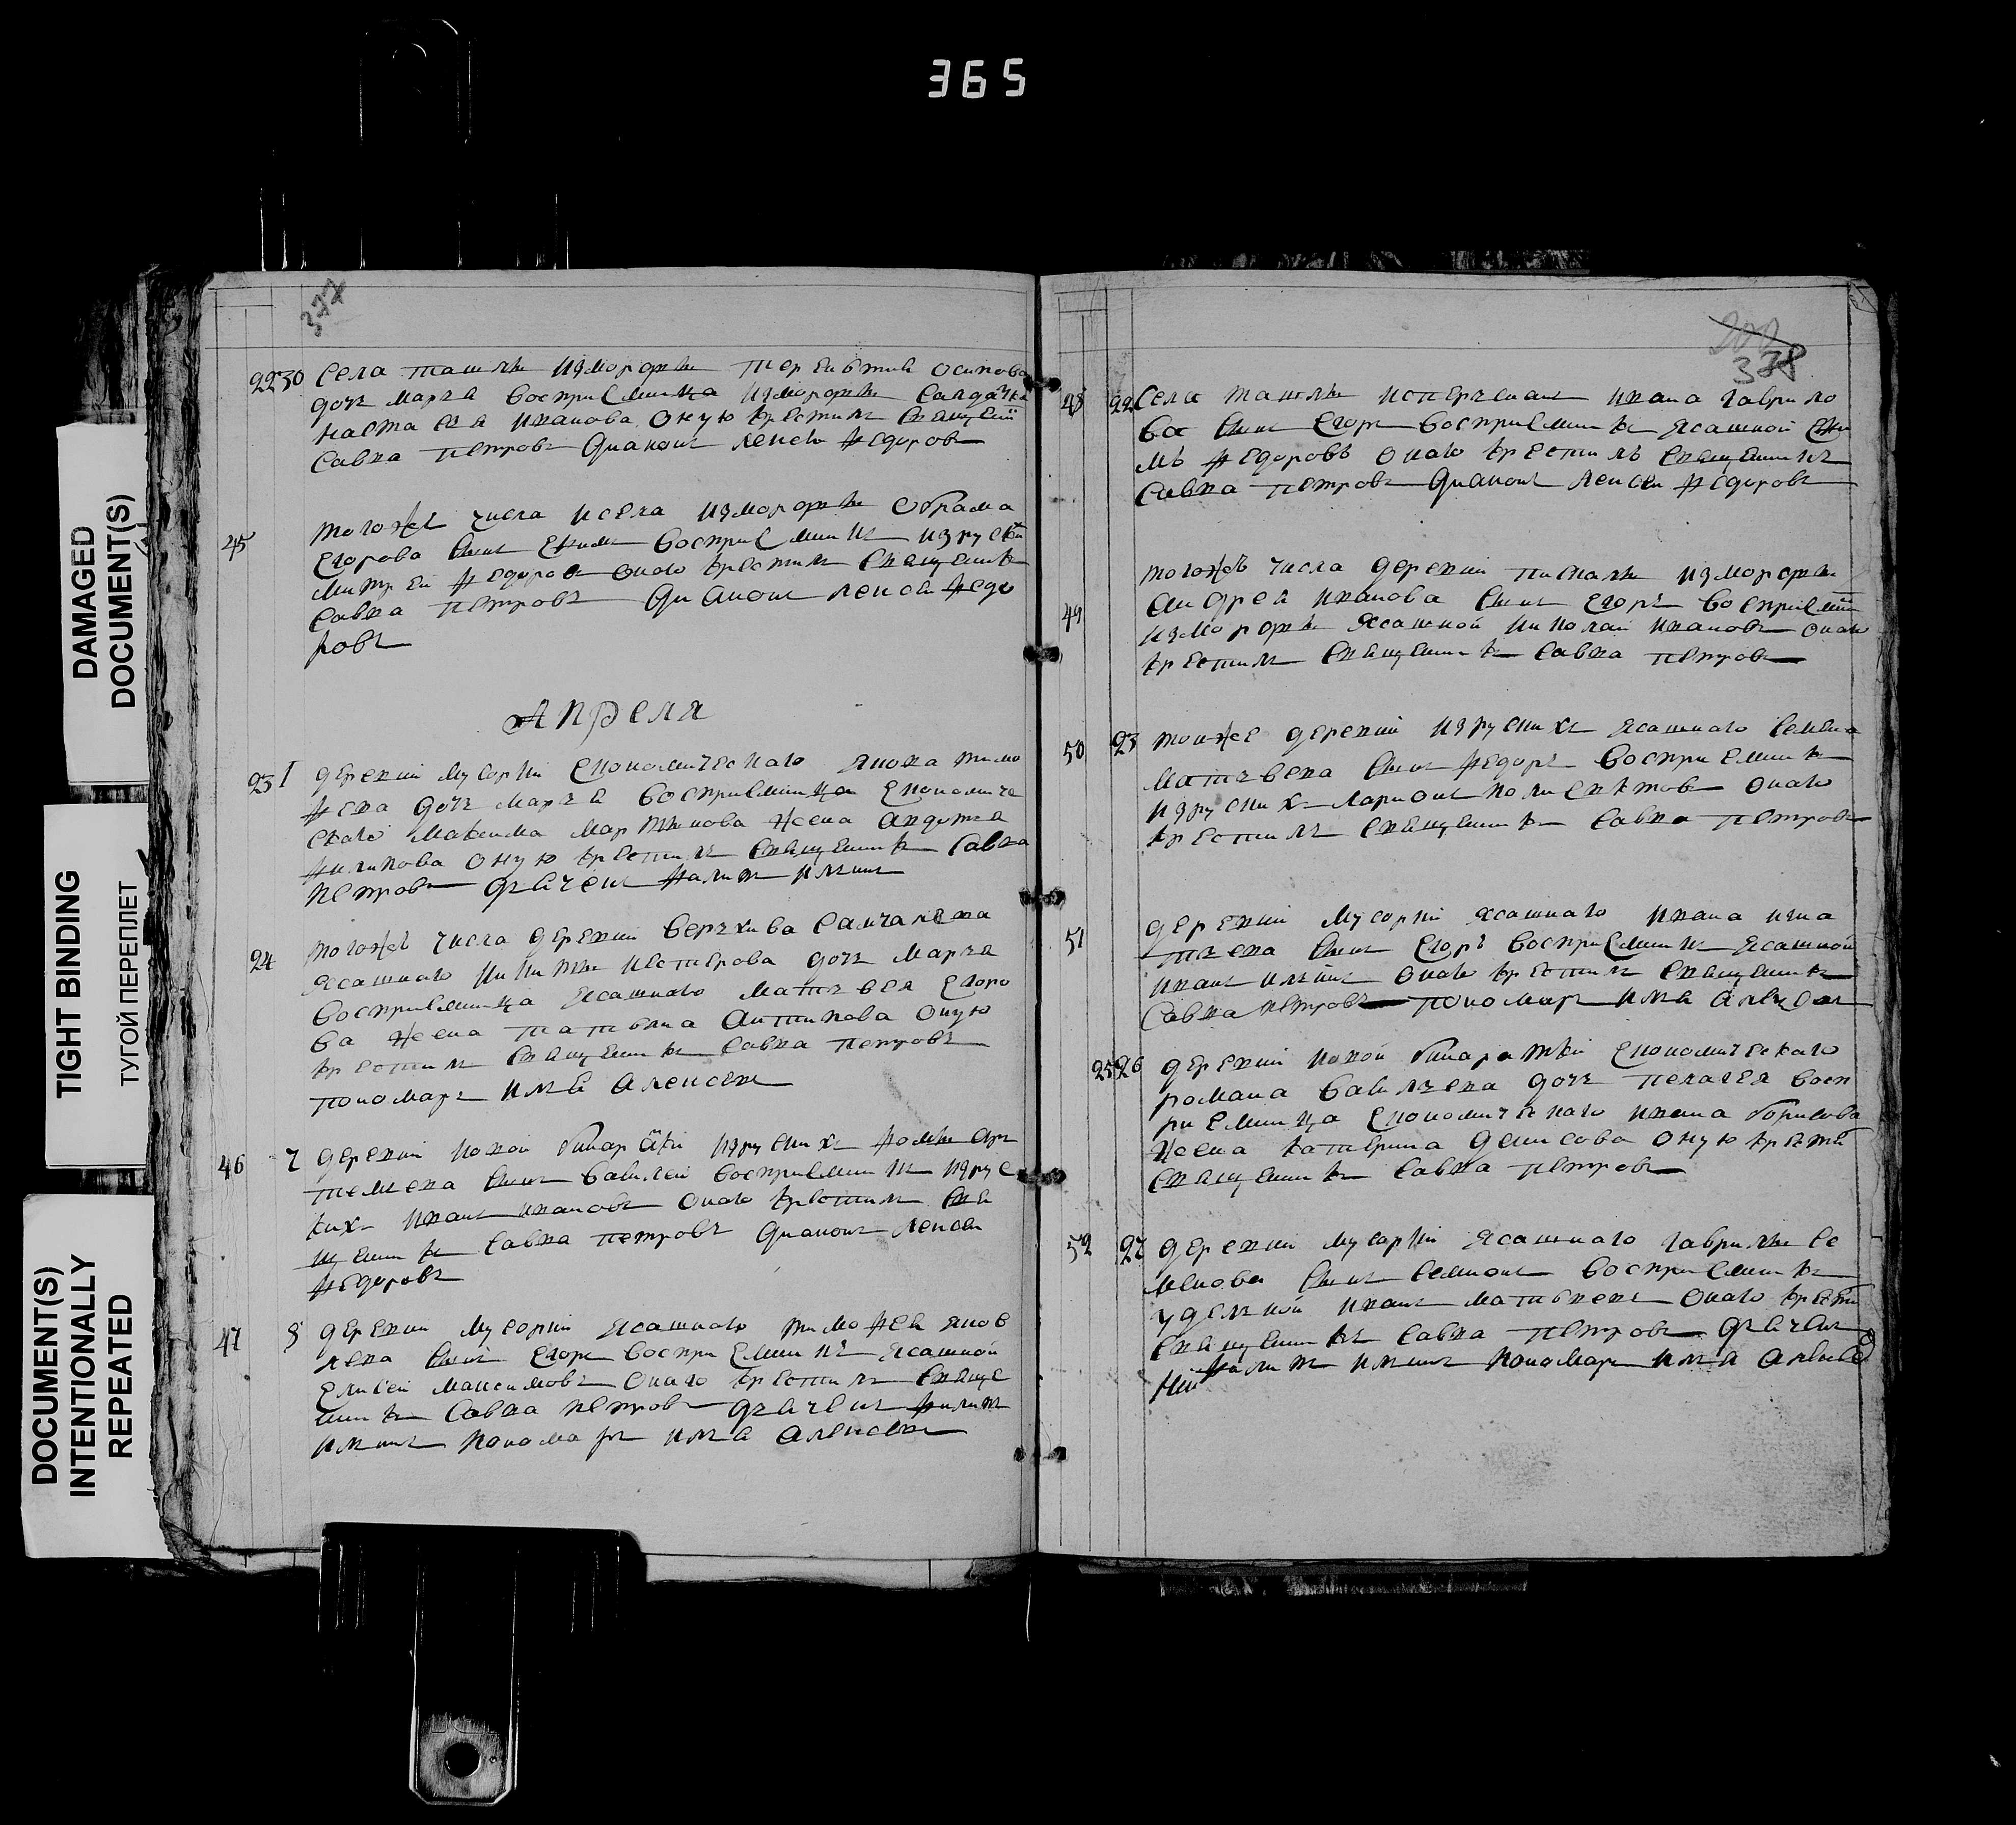 365
DAMAGED
DOCUMENT(S)
TIGHT BINDING
ТУГОЙ ПЕРЕПЛЕТ
DOCUMENT(S)
INTENTIONALLY
REPEATED
377
22 30 Села ташлы измордвы Осипова
дочь Марья восприемница измордвы салдатка
Иванова оную крестилъ священни
Савва Петровъ диаконъ Алексѣй Федоровъ
45 тогожъ числа села измордвы Абрама
Егорова сынъ Екимъ восприемникъ изруски
Федоровъ онаго крестилъ священникъ
Савва Петровъ диаконъ Алексѣй Федо
ровъ
Апреля
23 1 деревни Мусорки Економическаго Якова тимо
феева дочь Марья восприемница Економиче
скаго Максима Мартынова жена Авдотья
Филипова оную крестилъ священникъ Савва
Петровъ дьячекъ Филипъ Ильинъ
24 тогожъ числа деревни
ясашнаго Никиты Нестерова дочь Марья
восприемница ясашнаго Матвея Егоро
ва жена татьяна Антипова оную
крестилъ священникъ Савва Петровъ
пономарь Илья Алексеевъ
46 7 деревни новой изруских Фомы Ар
темьева сынъ Василей восприемникъ изрус
ких Иванъ Ивановъ онаго крестилъ свя
щенникъ Савва Петровъ диаконъ Алексѣй
Федоровъ
47 8 деревни Мусорки ясашнаго тимофея Яков
лева сынъ Егоръ восприемникъ ясашной
Елисей Максимовъ онаго крестилъ священ
никъ Савва Петровъ дьячекъ Филипъ
Ильинъ пономарь Илья Алексеевъ
378
48 22 Села ташлы Ивана Гаврило
ва сынъ Егоръ восприемникъ ясашной Еки
мъ Федоровъ онаго крестилъ священникъ
Савва Петровъ диаконъ Алексѣй Федоровъ
49 тогожъ числа деревни измордвы
Андрея Иванова сынъ Егоръ восприемни
измордвы ясашной Николай Ивановъ онаго
крестилъ священникъ Савва Петровъ
50 23 тойже деревни изруских ясашнаго Семена
Матвеева сынъ Федоръ восприемникъ
изруских Ларионъ онаго
крестилъ священникъ Савва Петровъ
51 деревни Мусорки ясашнаго Ивана Игна
тьева сынъ Егоръ восприемникъ ясашной
Иванъ Ильинъ онаго крестилъ священникъ
Савва Петровъ пономарь Илья Алексеев
25 26 деревни новой Економическаго
романа Васильева дочь Пелагея восп
риемница Економическаго Ивана Борисова
жена Катерина Денисова оную крести
священникъ Савва Петровъ
52 27 деревни Мусорки ясашнаго Гаврилы Се
менова сынъ Семионъ восприемникъ
удельной Иванъ Матвеевъ онаго крести
священникъ Савва Петровъ дьячекъ
Филипъ Ильинъ пономарь Илья Алексе